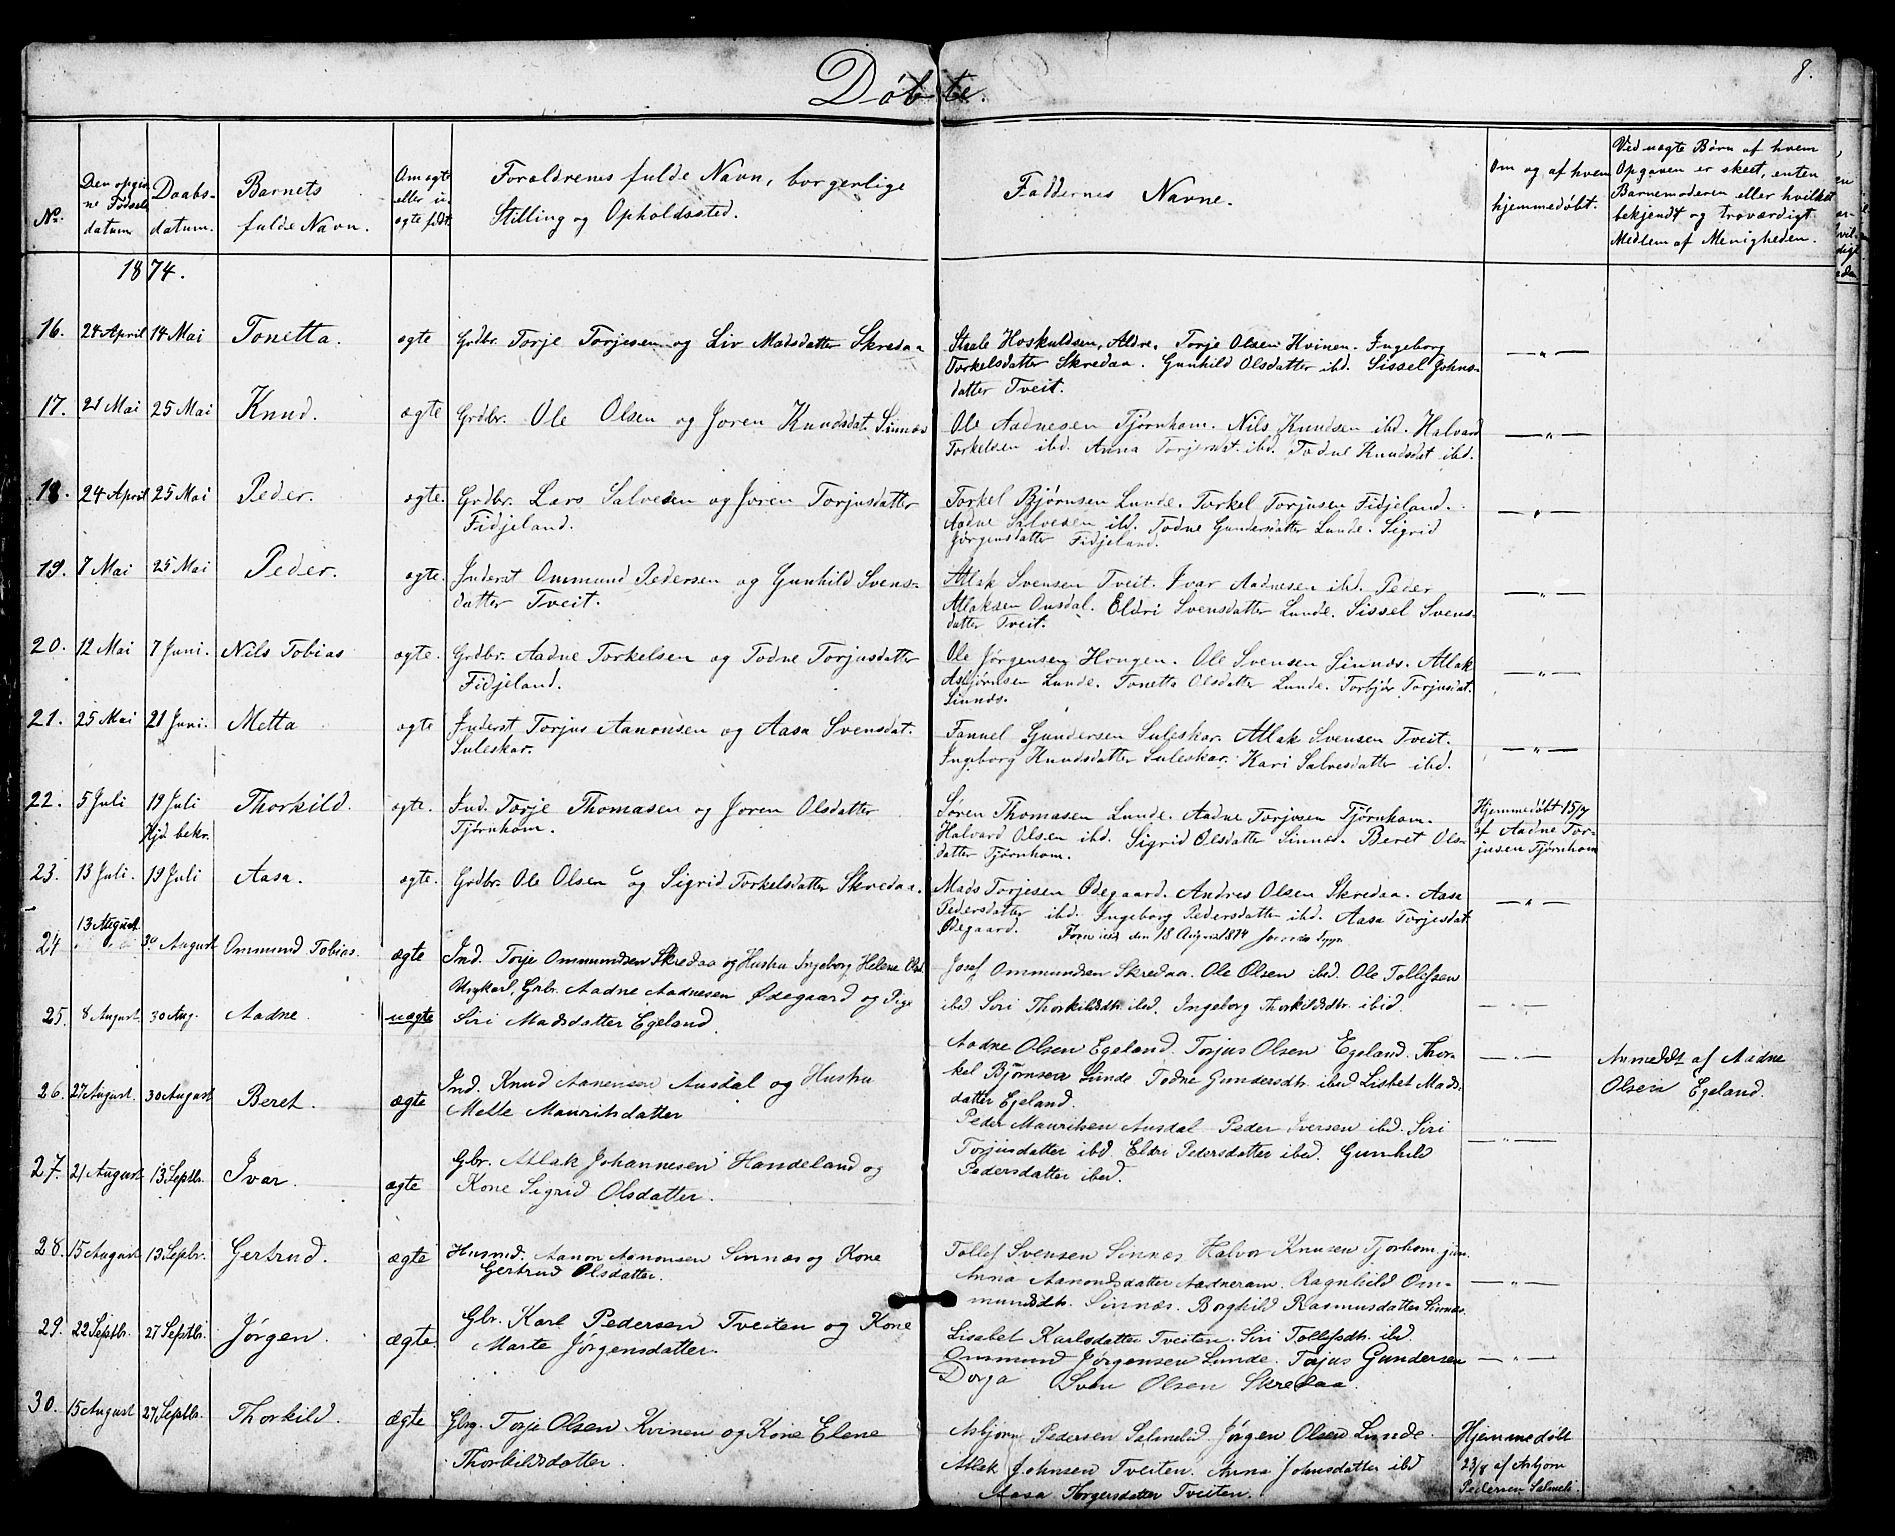 Døbte.
8.
No.
Den opgiv-
ne Fødsels
datum
Daabs-
datum.
Barnets
fulde Navn.
Om ægte
eller u-
ægte født.
Forældrenes fulde Navn, borgerlige
Stilling og Opholdssted.
Faddernes Navne.
Om og af hvem
hjemmedøbt.
Ved uægte Børn af hvem
Opgaven er skeet, enten
Barnemoderen eller hvilket
bekjendt og troværdigt
Medlem af Menigheden.
1874.
16. 24 April 14 Mai Tonetta. ægte Grdbr. Torje Torjesen og Liv Madsdatter Skredaa
Staale Hoskuldsen, Aldre. Torje Olsen Hvinen. Ingeborg
Torkelsdatter Skredaa. Gunhild Olsdatter ibd. Sissel Johns-
datter Tveit.
— „ —
17. 21 Mai 25 Mai Knud. ægte Grdbr. Ole Olsen og Joren Knudsdat. Sinnæs
Ole Aadnesen Tjørnham. Nils Knudsen ibd. Halvard
Torkelsen ibd. Anna Torjersdat. ibd. Todne Knudsdat ibd.
— „ —
18. 24 April 25 Mai Peder. ægte. Grdbr. Lars Salvesen og Joren Torjusdatter
Fidjeland.
Torkel Bjørnsen Lunde. Torkel Torjusen Fidjeland.
Aadne Salvesen ibd. Todne Gundersdatter Lunde. Sigrid
Jørgensdatter Fidjeland.
— „ —
19. 7 Mai 25 Mai Peder. ægte. Inderst Ommund Pedersen og Gunhild Svens-
datter Tveit.
Atlak Svensen Tveit. Ivar Aadnesen ibd. Peder
Atlaksen Ousdal. Eldri Svensdatter Lunde. Sissel Svens-
datter Tveit.
— „ —
20. 12 Mai 7 Juni. Nils Tobias ægte. Grdbr. Aadne Torkelsen og Todne Torjusdatter
Fidjeland.
Ole Jørgensen Hougen. Ole Svensen Sinnæs. Atlak
Asbjørnsen Lunde. Tonetta Olsdatter Lunde. Torbjør Torjusdat.
Sinnæs.
— „ —
21. 25 Mai 21 Juni. Metta ægte Inderst Torjus Aanonsen og Aasa Svensdat.
Suleskar.
Tanuel Gundersen Suleskar. Atlak Svensen Tveit.
Ingeborg Knudsdatter Suleskar. Kari Salvesdatter ibd.
— „ —
22. 5 Juli 19 Juli Thorkild. ægte. Ind. Torje Thomasen og Joren Olsdatter
Hjd. bekr. Tjørnhom.
Søren Thomasen Lunde. Aadne Torjusen Tjørnhom.
Halvard Olsen ibd. Sigrid Olsdatter Sinnæs. Beret Ols-
datter Tjørnhom.
Hjemmedøbt 15/7
af Aadne Tor-
jusen Tjørnhom
23. 13 Juli. 19 Juli Aasa. ægte. Grdbr. Ole Olsen og Sigrid Torkelsdatter Skredaa.
Mads Torjesen Ødegaard. Andres Olsen Skredaa. Aasa
Pedersdatter ibd. Ingeborg Pedersdatter ibd. Aasa Torjesdat
Ødegaard. den 18 August 1874
— „ —
24 13 August 30 August Ommund Tobias. ægte Ind. Torje Ommundsen Skredaa og Hustru Ingeborg Helene Olsd.
Josef Ommundsen Skredaa. Ole Olsen ibd. Ole Tollefsen
ibd Siri Thorkildsdtr. ibd. Ingeborg Thorkildsdtr. ibid.
— „ —
25. 8 August 30 Aug. Aadne. uægte Ungkarl, Gbr. Aadne Aadnesen Ødegaard og Pige
Siri Madsdatter Egeland.
Aadne Olsen Egeland. Torjus Olsen Egeland. Thor-
kel Bjørnsen Lunde Todne Gundersdtr. ibid Lisbet Mads-
datter Egeland.
— „ —
Anmeldt af Aadne
Olsen Egeland.
26. 27 August. 30 August Beret. ægte Ind. Knud Aanensen Ausdal og Hustru
Mette Mauritsdatter
Peder Mauritsen Ausdal Peder Iversen ibd. Siri
Torjusdatter ibd Eldri Pedersdatter ibid. Gunhild
Pedersdatter ibid.
— „ —
27. 21 August 13 Septbr. Ivar. ægte Gbr. Atlak Johannesen Handeland og
Kone Sigrid Olsdatter.
28. 15 August 13 Sepbr. Gertrud. ægte Husmd. Aanon Aanonsen Sinnæs og Kone
Gertrud Olsdatter.
Tollef Svensen Sinnæs Halvor Knusen Tjorhom jun.
Anna Aanondsdatter Aadneram. Ragnhild Om-
mundsdtr. Sinnæs. Borghild Rasmusdatter Sinnæs.
— „ —
29. 22 Septbr. 27 Septbr. Jørgen. ægte. Gbr. Karl Pedersen Tveiten og Kone
Marte Jørgensdatter.
Lisabet Karlsdatter Tveiten. Siri Tollefsdtr. ibd.
Ommund Jørgensen Lunde. Torjus Gundersen
Dorga Sven Olsen Skredaa.
— „ —
30. 15 August 27 Septbr. Thorkild. ægte Gbrg. Torje Olsen Kvinen og Kone Elene
Thorkildsdatter.
Asbjørn Pedersen Salmelid Jørgen Olsen Lunde.
Atlak Johnsen Tveiten. Anna Johnsdatter ibd
Aasa Thorgersdatter Tveiten.
Hjemmedøbt
23/8 af Asbjørn
Pedersen Salmeli.